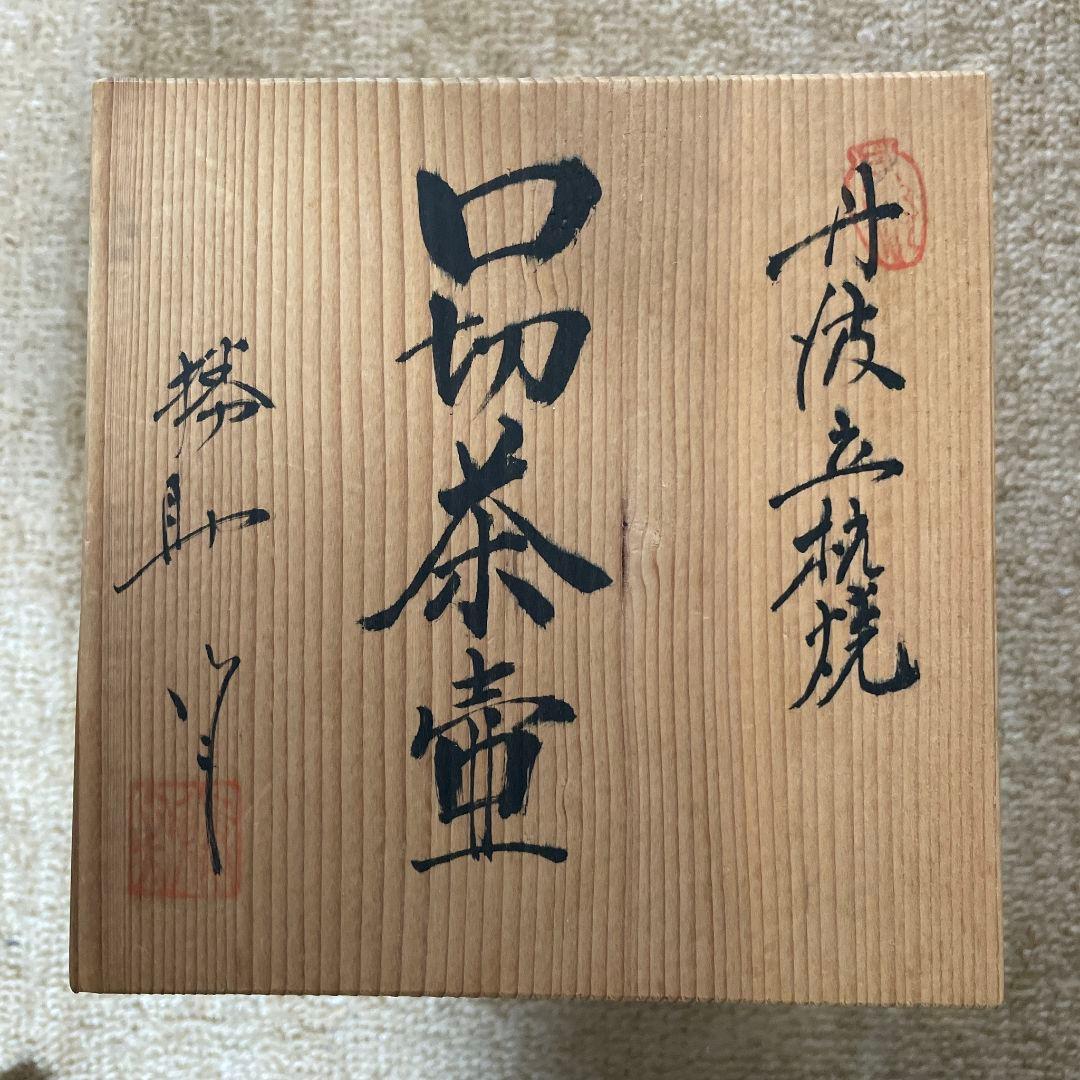 丹波立杭焼
口切茶壷
勝助作